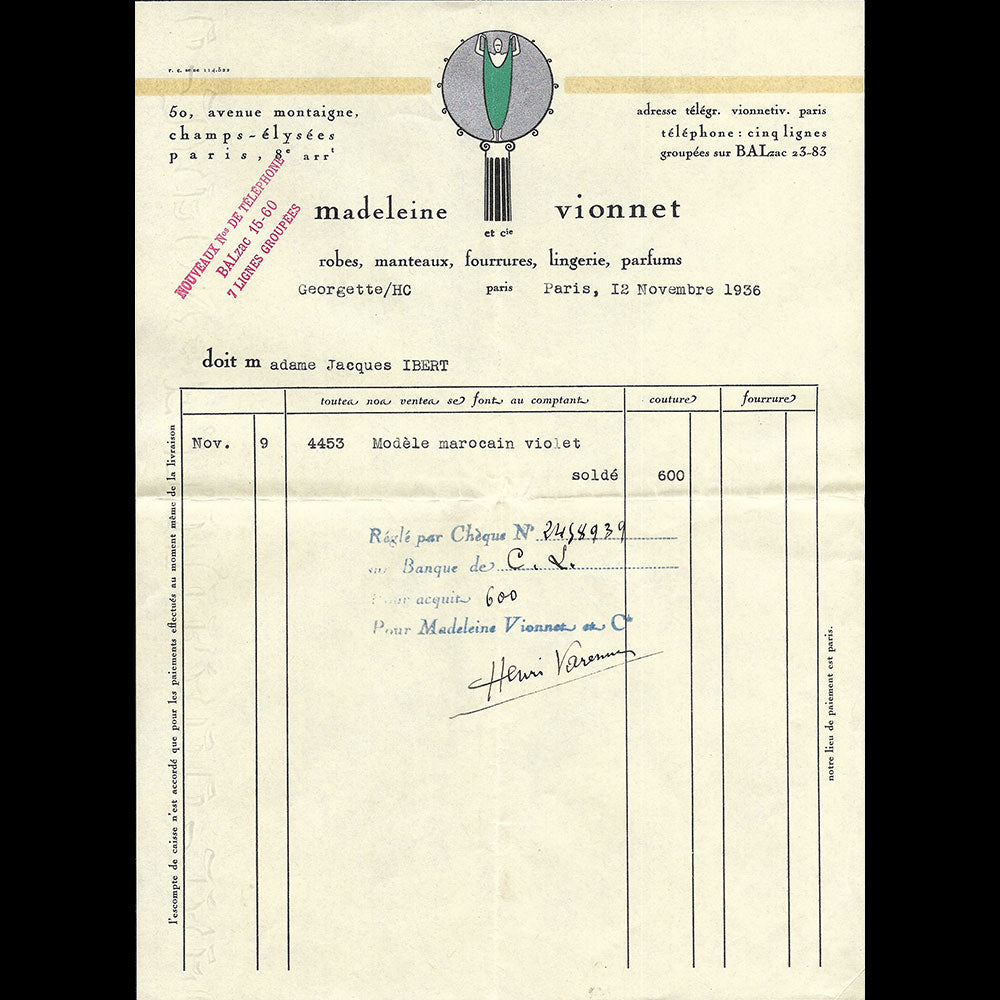 r. c. seine 114.522
50, avenue montaigne,
champs-élysées
paris, 8e arrt
adresse télégr. vionnetiv. paris
téléphone : cinq lignes
groupées sur BALzac 23-83
NOUVEAUX Nos DE TÉLÉPHONE
BALzac 15-60
7 LIGNES GROUPÉES
madeleine vionnet
et cie
robes, manteaux, fourrures, lingerie, parfums
Georgette/HC paris Paris, 12 Novembre 1936
doit m adame Jacques IBERT
toutes nos ventes se font au comptant couture fourrure
Nov. 9 4453 Modèle marocain violet
soldé 600
Réglé par Chèque No 2458939
sur Banque de C. L.
Pour acquit 600
Pour Madeleine Vionnet et Cie
Henri Varenne
l'escompte de caisse n'est accordé que pour les paiements effectués au moment même de la livraison
notre lieu de paiement est paris.